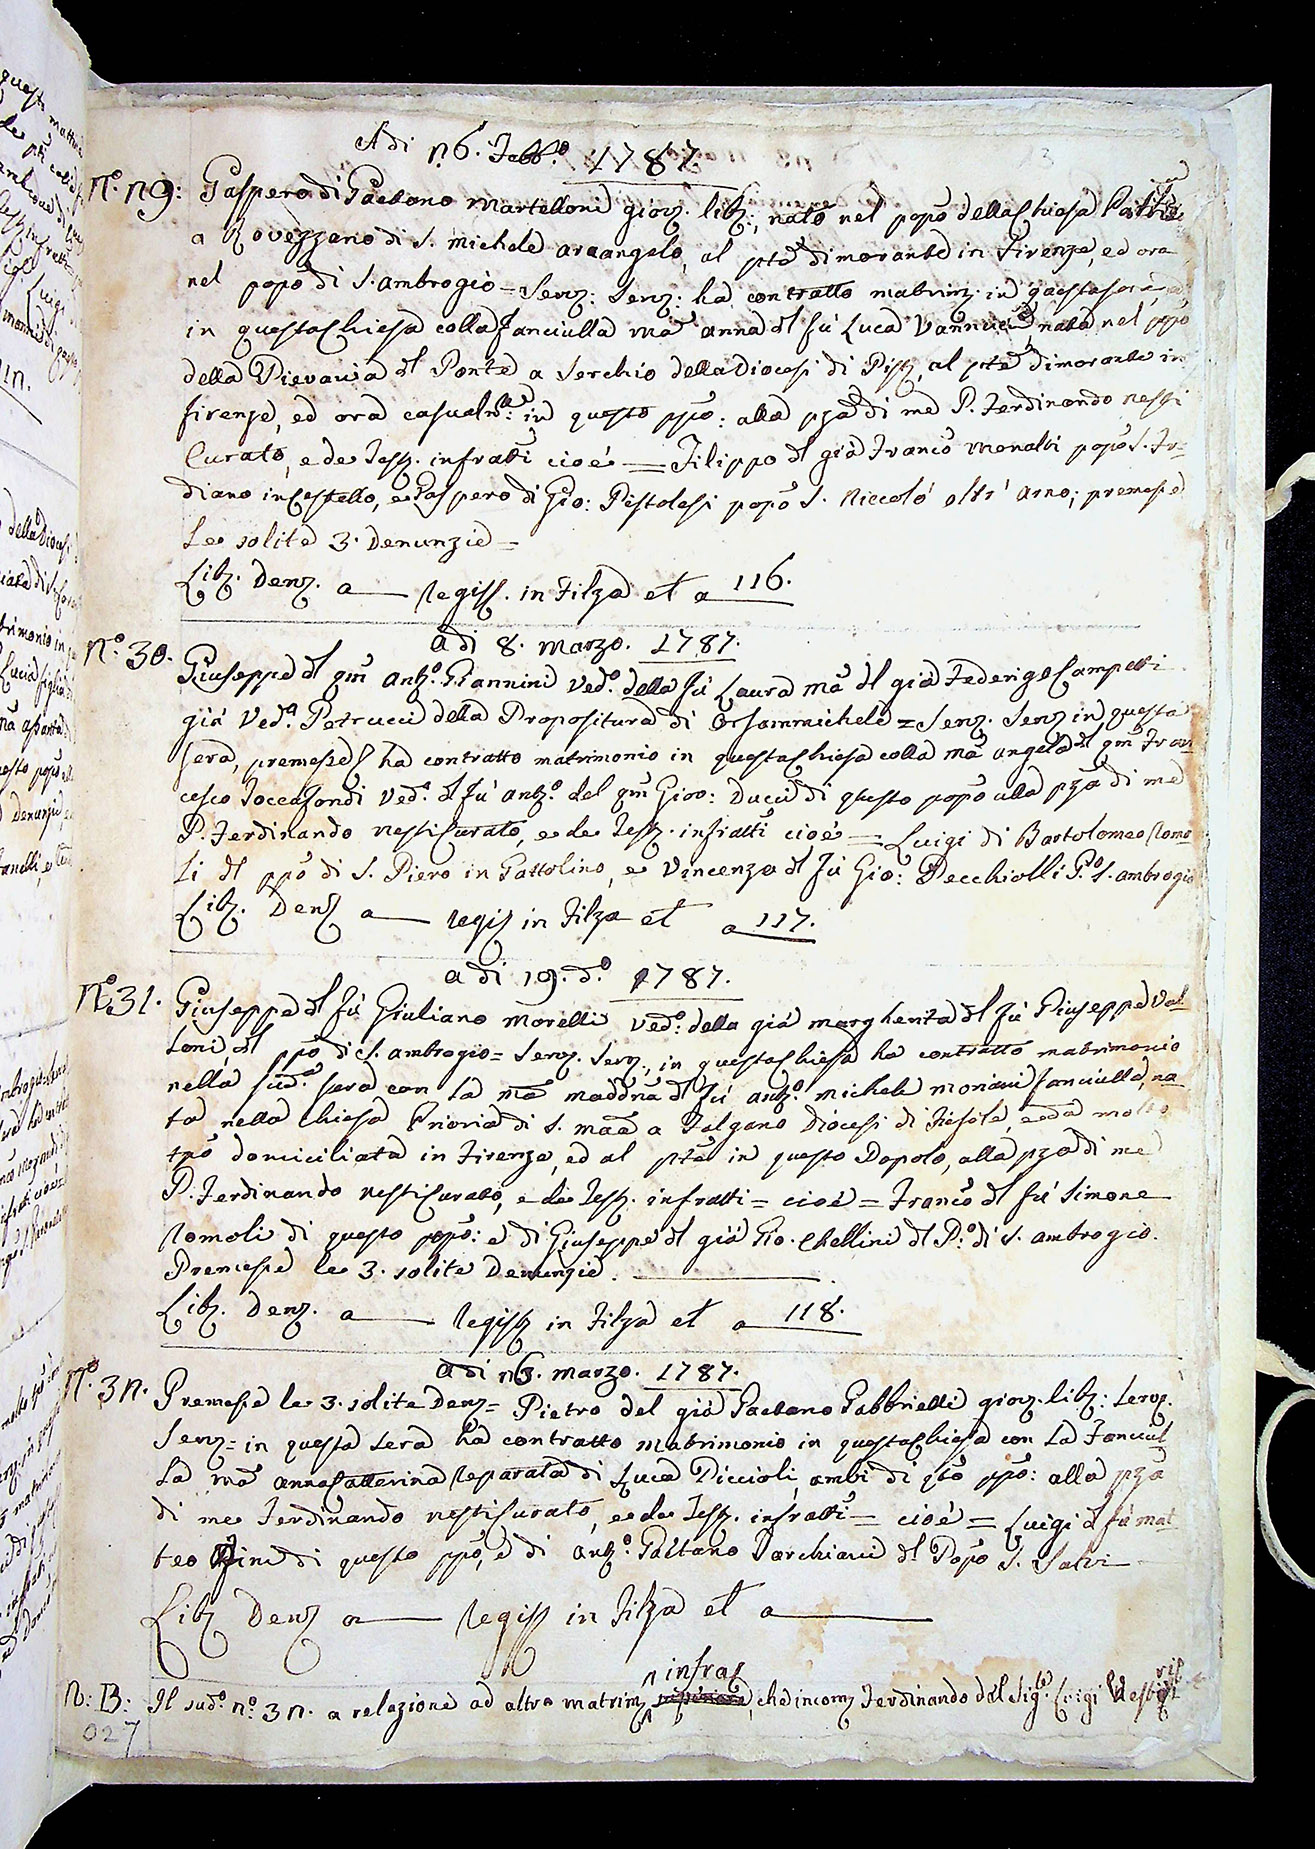 Adi 26. Febb.º 1787.
Nº. 29: Gaspero di Gaetano Martelloni giov. lib:, nato nel popº della Chiesa
a Rovezzano di S. Michele Arcangelo, al pnte dimorante in Firenze, ed ora
nel popº di S. Ambrogio = Serv: Serv: ha contratto matrim: in questa sera,
in questa Chiesa colla Fanciulla Mª Anna dl fù Luca Vannucci, nata nel ppº
della Pievania dl Ponte a Serchio della Diocesi di Pisa, al pnte dimorante in
Firenze, ed ora casualmte: in questo ppº: alla pza di me P. Ferdinando Nesti
Curato, e de Test. infratti cioé = Filippo dl già Francº Menalti popº S. Fr=
diano in Cestello, e Gaspero di Gio: Pistolesi popº S. Niccoló oltr' Arno; premesse
Le solite 3. Denunzie =
Lib. Denz. a — Regiss. in Filza et a 116.
Nº. 30. adi 8. Marzo. 1787.
Giuseppe dl qm Antº. Giannini Vedº. della fù Laura Mª dl già Federigo Campetti
già Vedª. Petrucci della Propositura di Orsammichele = Serv. Serv. in questa
sera, premesse ha contratto matrimonio in questa Chiesa colla Mª Angela dl qm Fran
cesco Toccafondi Vedª. dl fù Antº. del qm Giov: Ducci di questo popº alla pza di me
P. Ferdinando Nesti Curato, e de Test. infratti cioé = Luigi di Bartolomeo Romo
li dl ppº di S. Piero in Gattolino, e Vincenzo dl fù Gio: Pecchiolli Pº. S. Ambrogio
Lib. Denz a — Regis in Filza et a 117.
Nº. 31. adi 19. dº. 1787.
Giuseppe dl fù Giuliano Morelli Vedº: della già Margherita dl fù Giuseppe Val=
loni dl ppº di S. Ambrogio = Serv. Serv., in questa Chiesa ha contratto matrimonio
nella sudª. sera con la Mª Maddna dl fù Antº. Michele Moriani fanciulla, na
ta nella Chiesa Prioria di S. Maria a Falgano Diocesi di Fiesole, e da molto
tpo domiciliata in Firenze, ed al pnte in questo Popolo, alla pza di me
P. Ferdinando Nesti Curato, e de Test. infratti = cioé = Francº dl fù Simone
Romoli di questo popº: e di Giuseppe dl già Gio. Chellini dl Pº: di S. Ambrogio.
Premesse le 3. solite Denunzie.
Lib. Denz. a — Regiss in Filza et a 118.
Nº. 32. adi 26. Marzo. 1787.
Premesse le 3. solite Denz = Pietro del già Gaetano Gabbrielli giov. lib: Serv.
Serv = in questa sera ha contratto matrimonio in questa Chiesa con la Fanciul
la Mª Anna Catterina Reparata di Luca Piccioli, ambi di qto ppº: alla pza
di me Ferdinando Nesti Curato, e de Test. infratti = cioé = Luigi dl fù Mat
teo Pini di questo ppº, e di Antº. Gaetano Parchiani dl Popº S. Salvi
Lib Denz a — Regiss in Filza et a —
N: B: Il sudº. nº. 32. a relazione ad altro matrim infra, che incom. Ferdinando del Sigre. Luigi
027